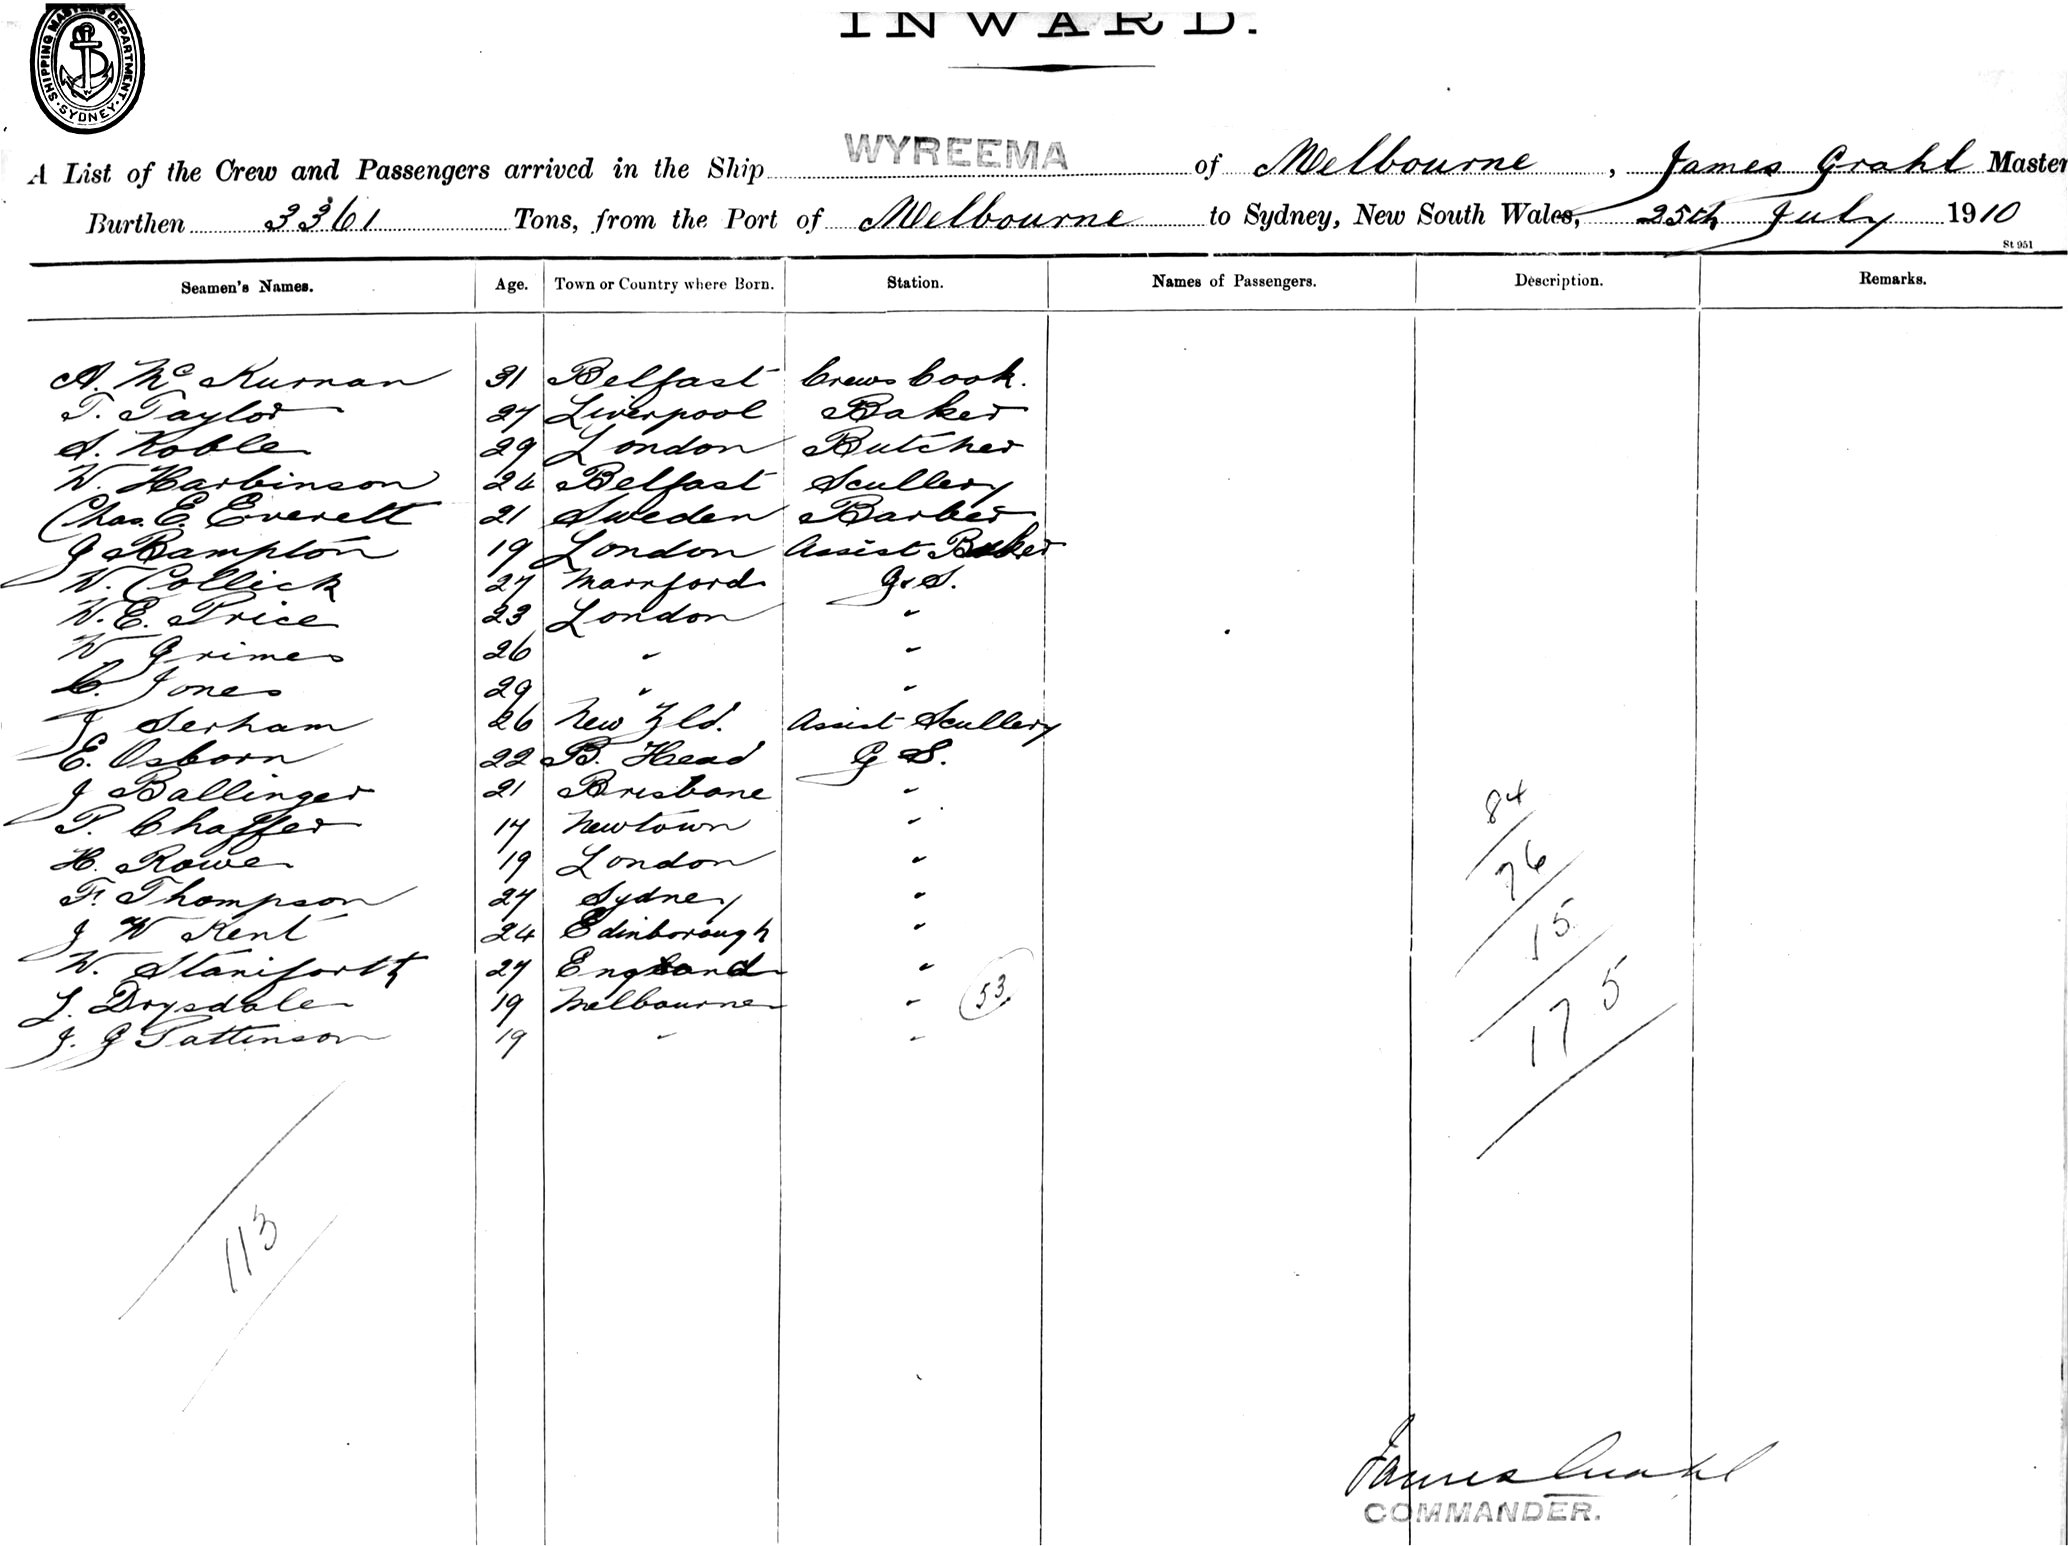 SHIPPING MASTERS DEPARTMENT · SYDNEY ·
INWARD.
A List of the Crew and Passengers arrived in the Ship WYREEMA of Melbourne, James Grahl Master
Burthen 3361 Tons, from the Port of Melbourne to Sydney, New South Wales, 25th July 1910
St 951
Seamen's Names. Age. Town or Country where Born. Station. Names of Passengers. Description. Remarks.
A. Mc Kurnan 31 Belfast Crews Cook.
T. Taylor 27 Liverpool Baker
S. Noble 29 London Butcher
W. Harbinson 24 Belfast Scullery
Chas. E. Everett 21 Sweden Barber
J Bampton 19 London Assist Baker
W. Collick 27 G. S.
W. E. Price 23 London "
W Grimes 26 " "
C. Jones 29 " "
J Serham 26 New Zld. Assist Scullery
E. Osborn 22 B. Head G S.
J Ballinger 21 Brisbane "
P. Chaffer 17 Newtown "
H. Rowe 19 London "
F. Thompson 27 Sydney "
J W Kent 24 Edinborough "
W. Staniforth 27 England "
L. Drysdale 19 Melbourne "
J. G Pattinson 19 " "
53
84
76
15
175
113
James Grahl
COMMANDER.